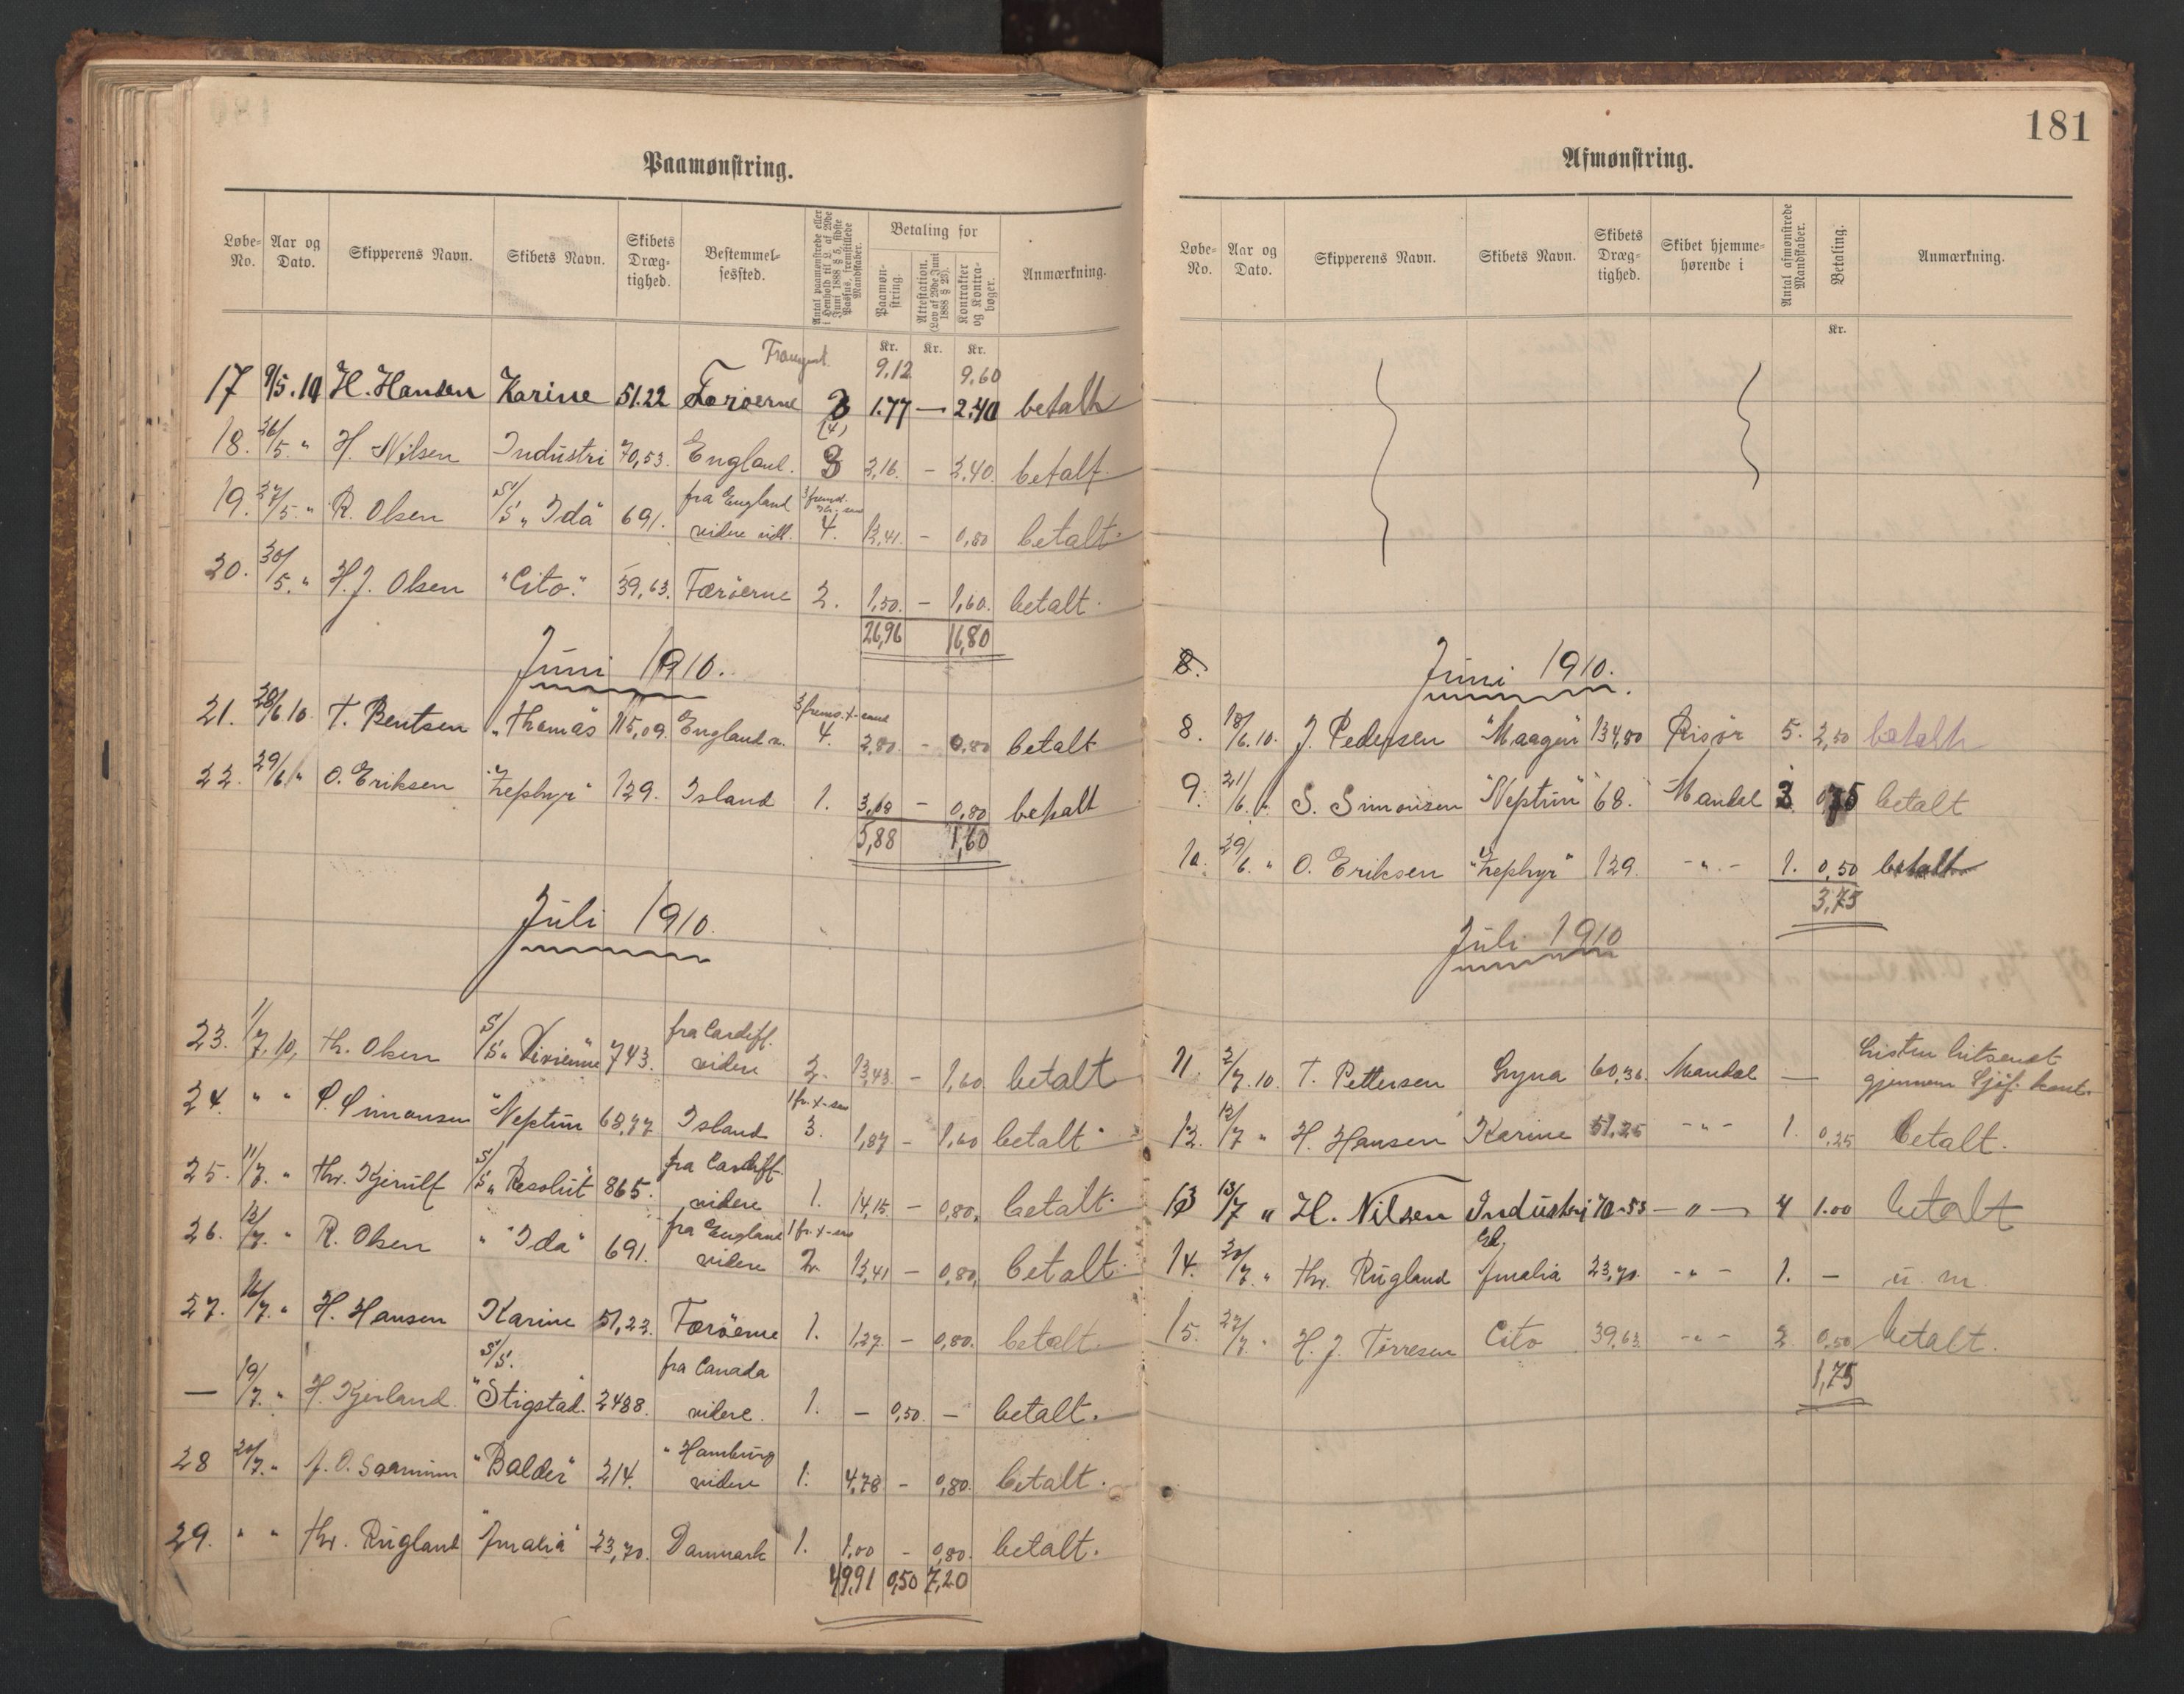 Paamønstring.
Løbe-No. Aar og Dato. Skipperens Navn. Skibets Navn. Skibets Dræg-tighed. Bestemmel-sessted. Antal paamønstrede eller i Henhold til L. af 29de Juni 1888 § 5, sidste Passus, fremstillede Mandskaber. Betaling for Paamøn-string. Attestation. (Lov af 29de Juni 1888 § 25). Kontrakter og Kontra-bøger. Anmærkning.
Kr. Kr. Kr.
9.12 9.60
17 9/5.10 H. Hansen Karine 51.22 Færøerne 3 1.77 — 2.40 betalt
(4)
18. 26/5. " H. Nilsen Industri 70,53. England. 3 2,16. - 2.40. betalt.
19. 27/5. " R. Olsen S/S „Ida" 691. fra England videre 4. 13,41. - 0,80 betalt.
20. 30/5. " H.J. Olsen "Cito." 39,63. Færöerne 2. 1,50. - 1,60. betalt.
26,96 16,80
Juni 1910.
21. 28/6.10. T. Bentsen „Thomas" 115,09. England 4. 2,80. - 0,80 betalt
22. 29/6. " O. Eriksen "Zephyr" 129. Island 1. 3,08 - 0,80 betalt
5,88 1,60
Juli 1910.
23. 1/7.10, Th. Olsen S/S „Vivienne" 743. fra Cardiff. videre 2. 13,43. - 1,60. betalt
24. " " S. Simonsen "Neptun 68,77 Island 3. 1,87 - 1,60 betalt
25. 11/7. " Thv. Kjerulf S/S „Resolut" 865. fra Cardiff. videre 1. 14,15. - 0,80, betalt.
26. 12/7. " R. Olsen " "Ida" 691. fra England videre 2. 13,41 - 0,80, betalt.
27. 16/7. " H. Hansen Karine 51,22. Færöerne 1. 1,27. - 0,80. betalt.
— 19/7. " H. Kjerland. S/S. "Stigstad." 2488. fra Canada videre. 1. - 0,50. - betalt.
28 20/7. " "Balder" 214. " Hamburg videre 1. 4,78 - 0,80. betalt.
29. " " Thv. Rugland "Amalia" 23,70. Danmark 1. 1,00 - 0,80. betalt.
49,91 0,50 7,20
181
Afmønstring.
Løbe-No. Aar og Dato. Skipperens Navn. Skibets Navn. Skibets Dræg-tighed. Skibet hjemme-hørende i Antal afmønstrede Mandskaber. Betaling. Anmærkning.
Kr.
8.
Juni 1910.
8. 18/6.10. J. Pedersen "Maagen" 134,80 Risör 5. 2,50 betalt
9. 21/6. " S. Simonsen "Neptun" 68. Mandal 3 0,75 betalt
10. 29/6. " O. Eriksen "Zephyr" 129. - " - 1. 0,50 betalt
3,75
Juli 1910
11. 2/7.10. T. Pettersen Gyna 60,36. Mandal — Listen hitsendt gjennem Sjöf. kont.
12. 12/7 " H. Hansen Karine 51,25 - " - 1. 0,25 betalt.
13 13/7 " H. Nilsen Industri 70.53 — " — 4 1.00 betalt
14. 20/7. " Thv. Rugland Amalia 23,70. - " - 1. - u. m.
15. 27/7. " H. J. Törresen Cito 39,63. - " - 2. 0,50 betalt.
1,75